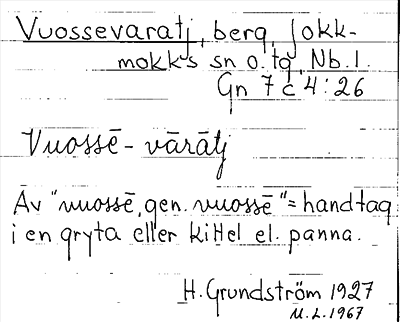 Vuossevaratj, berg, Jokk-
mokks sn o. tg, Nb. l.
Gn 7 c 4:26
Vuossē - vārātj
Av "vuossē, gen. vuossē" = handtag
i en gryta eller kittel el. panna.
H. Grundström 1927
M.L. 1967